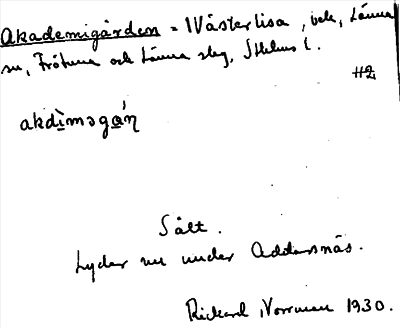 Akademigården = Västerlisa, bek, Länna
sn, Frötuna och Länna slg, Sthlms l.
#2
akdìməgǫ́ŋ
Sålt.
Lyder nu under Addarsnäs.
Rickard Norrman 1930.